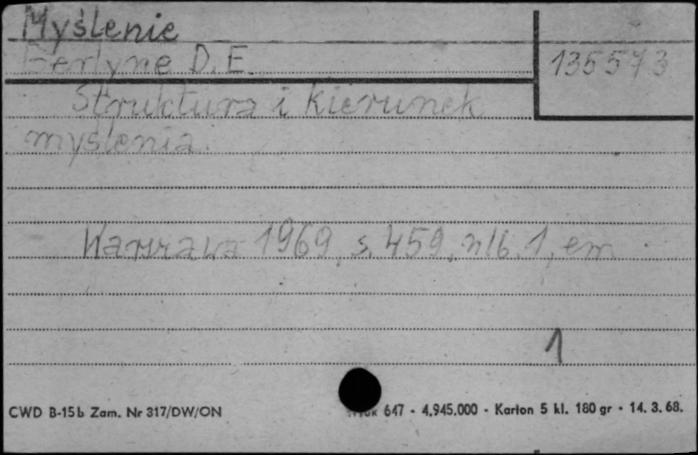 Myślenie
Berlyne D. E.
135573
Struktura i kierunek
myślenia.
Warszawa 1969, s. 459, nlb. 1, em
1
CWD B-15b Zam. Nr 317/DW/ON
647 - 4.945.000 - Karton 5 kl. 180 gr - 14. 3. 68.